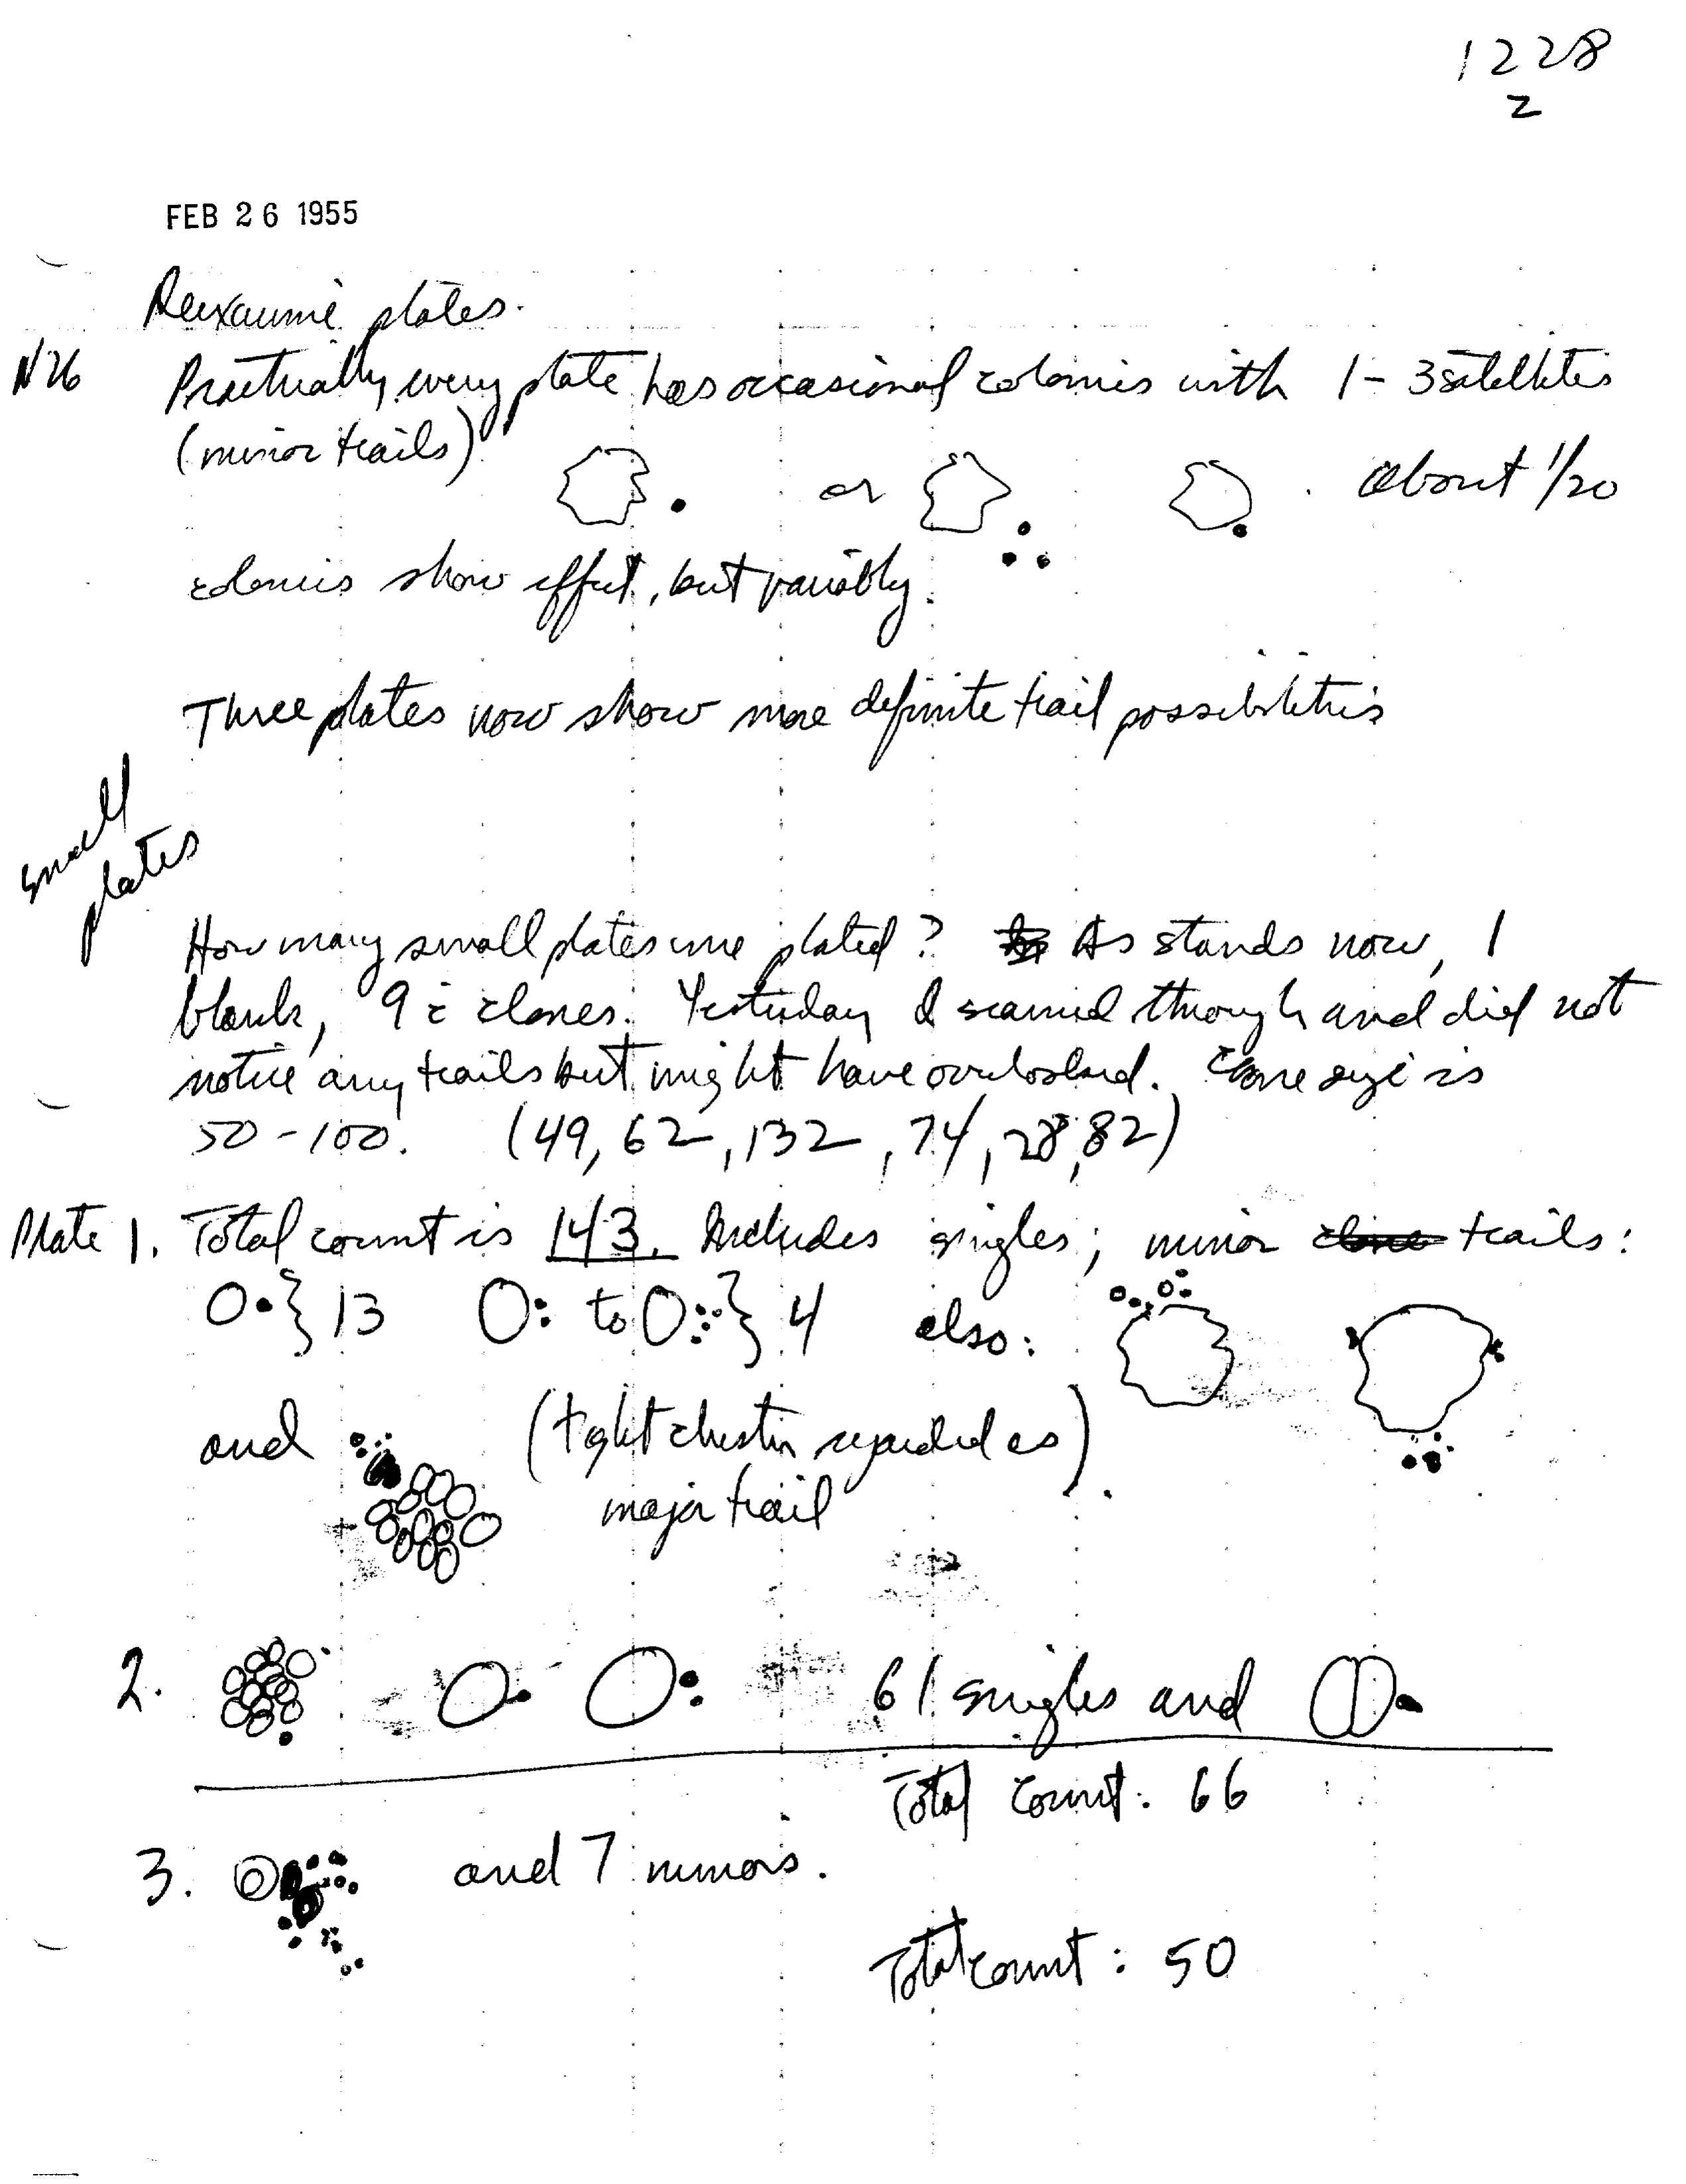 1228
2
FEB 26 1955
Reexamine plates.
N26 Practually every plate has occasional colonies with 1-3 satellites
(minor trails) or . about 1/20
colonies show effect, but variably.
Three plates now show more definite trail possibilities
small
plates
How many small plates were plated? As stands now, 1
blank, 9 c̄ clones. Yesterday I scanned through and did not
notice any trails but might have overlooked. Clone size is
50-100. (49, 62, 132, 74, 28, 82)
Plate 1. Total count is 143. Includes singles; minor clone trails:
} 13 to } 4 also:
and (tight cluster regarded as)
major trail
2. 61 singles and
Total Count: 66
3. and 7 minors.
Total count: 50